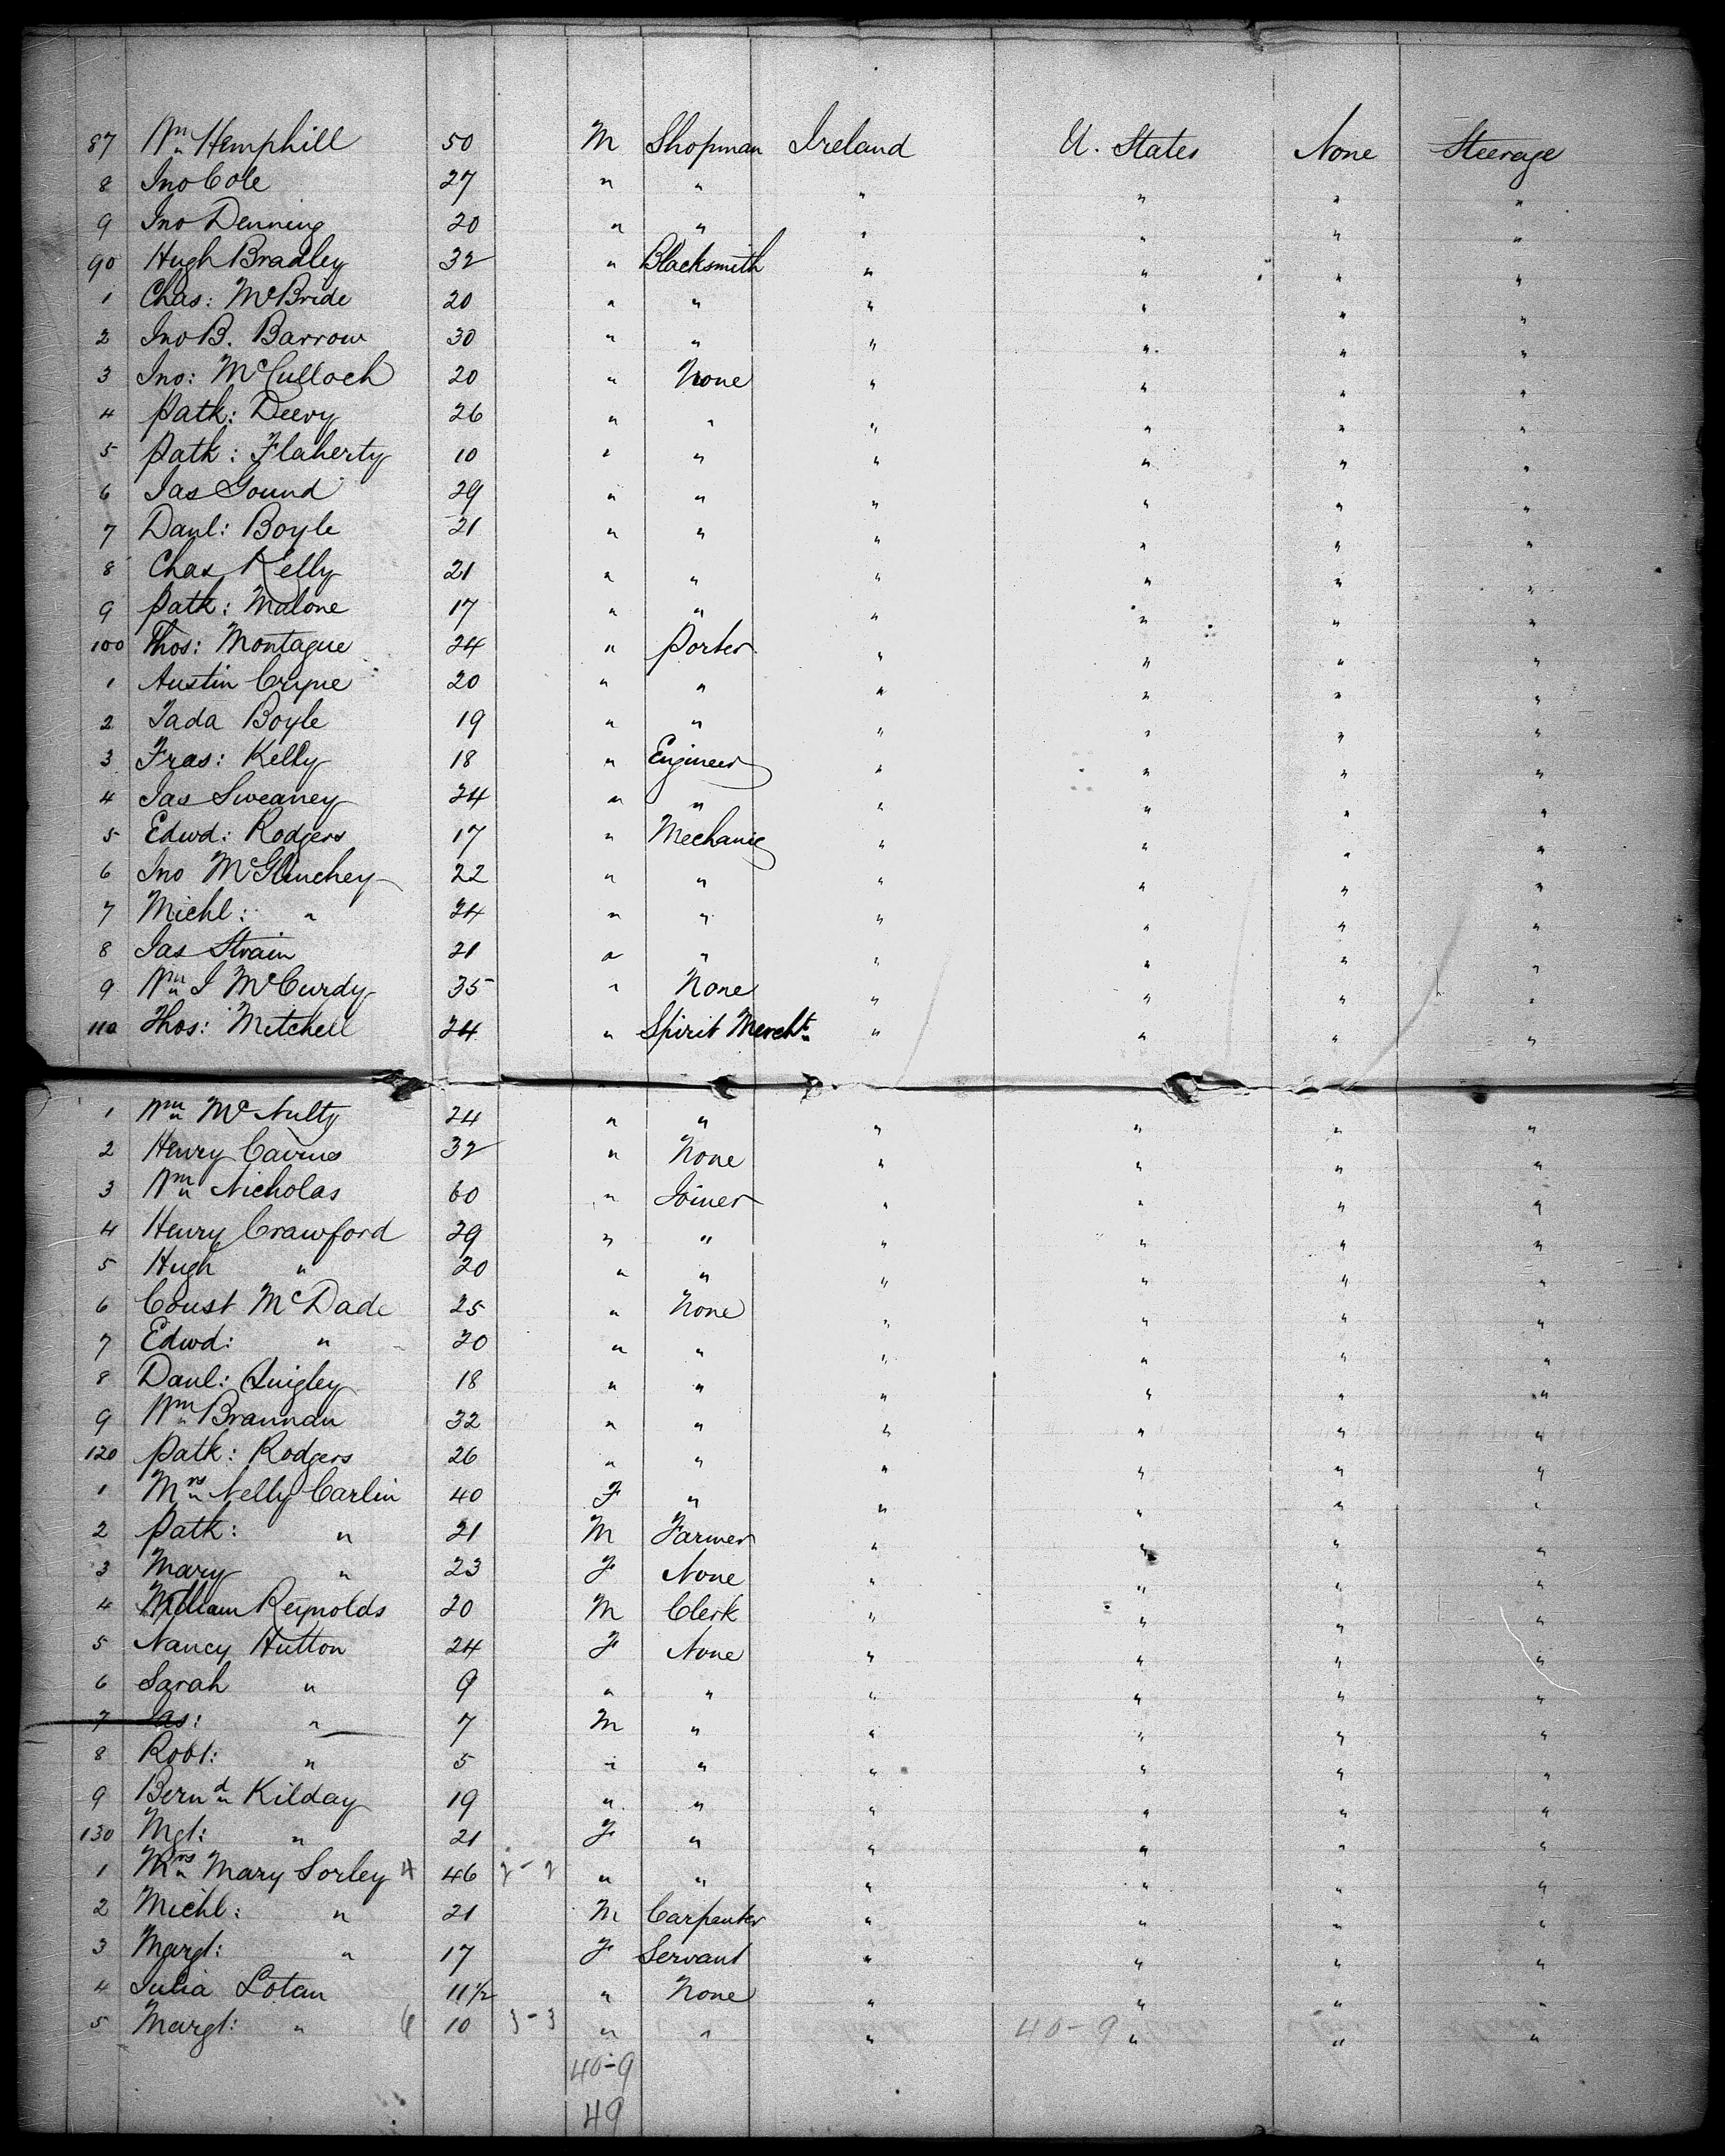 87 Wm Hemphill 50 M Shopman Ireland U. States None Steerage
8 Jno Cole 27 " " " " " "
9 Jno Denning 20 " " " " " "
90 Hugh Bradley 32 " Blacksmith " " " "
1 Chas: McBride 20 " " " " " "
2 Jno B. Barrow 30 " " " " " "
3 Jno: McCulloch 20 " None " " " "
4 Patk: Deevy 26 " " " " " "
5 Patk: Flaherty 10 " " " " " "
6 Jas Gound 29 " " " " " "
7 Danl: Boyle 21 " " " " " "
8 Chas Kelly 21 " " " " " "
9 Patk: Malone 17 " " " " " "
100 Thos: Montague 24 " Porter " " " "
1 Austin Cryne 20 " " " " " "
2 Tada Boyle 19 " " " " " "
3 Fras: Kelly 18 " Engineer " " " "
4 Jas Sweaney 24 " " " " " "
5 Edwd: Rodgers 17 " Mechanic " " " "
6 Jno McGlinchey 22 " " " " " "
7 Michl: " 24 " " " " " "
8 Jas Strain 21 " " " " " "
9 Wm J McCurdy 35 " None " " " "
110 Thos: Mitchell 24 " Spirit Mercht " " " "
1 Wm McNulty 24 " " " " " "
2 Henry Cairns 32 " None " " " "
3 Wm Nicholas 60 " Joiner " " " "
4 Henry Crawford 29 " " " " " "
5 Hugh " 20 " " " " " "
6 Const McDade 25 " None " " " "
7 Edwd: " 20 " " " " " "
8 Danl: Quigley 18 " " " " " "
9 Wm Brannan 32 " " " " " "
120 Patk: Rodgers 26 " " " " " "
1 Mrs Nelly Carlin 40 F " " " " "
2 Patk: " 21 M Farmer " " " "
3 Mary " 23 F None " " " "
4 William Reynolds 20 M Clerk " " " "
5 Nancy Hutton 24 F None " " " "
6 Sarah " 9 " " " " " "
7 Jas: " 7 M " " " " "
8 Robt: " 5 " " " " " "
9 Bernd Kilday 19 " " " " " "
130 Mgt: " 21 F " " " " "
1 Mrs Mary Sorley 4 46 2-2 " " " " " "
2 Michl: " 21 M Carpenter " " " "
3 Margt: " 17 F Servant " " " "
4 Julia Lotan 11½ " None " " " "
5 Margt: " 6 10 3-3 " " " 40-9 " " "
40-9
49